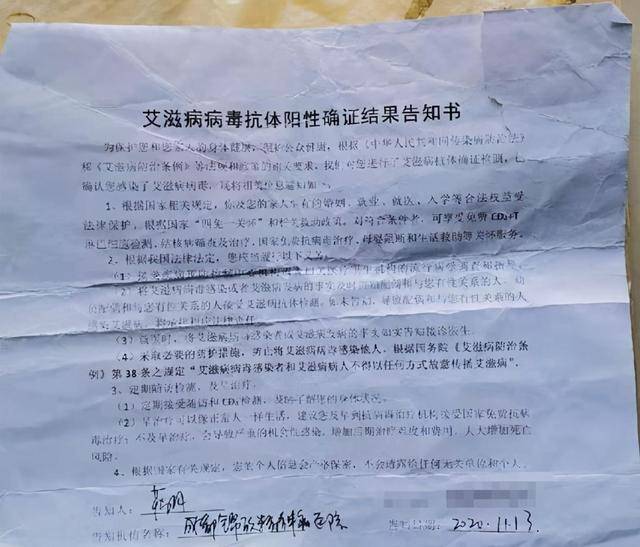 艾滋病病毒抗体阳性确证结果告知书
为保护您和您家人的身体健康,维护公众健康,根据《中华人民共和国传染病防治法》
和《艾滋病防治条例》等法规和政策的相关要求,我们对您进行了艾滋病抗体确证检测,已
确认您感染了艾滋病病毒,现将相关信息通知如下:
1、根据国家相关规定,你及您的家人享有的婚姻、就业、就医、入学等合法权益受
法律保护,根据国家“四免一关怀”和相关救助政策,对符合条件者,可享受免费CD4+T
淋巴细胞检测、结核病筛查及治疗、国家免费抗病毒治疗、母婴阻断和生活救助等关怀服务。
2、根据我国法律法定,您应当履行以下义务:
(1)接受疾病预防控制
机构的流行病学调查和指导。
(2)将艾滋病病毒感染或者艾滋病发病的事实及时告知配偶和与您有性关系的人,动
员配偶和与您有性关系的人接受艾滋病抗体检测。如未告知,导致配偶和与您有性关系的人
感染艾滋病,将承担相应法律责任
(3)就医时,将艾滋病病毒感染者或艾滋病发病的事实如实告知接诊医生。
(4)采取必要的防护措施,防止将艾滋病病毒感染他人。根据国务院《艾滋病防治条
例》第38条之规定“艾滋病病毒感染者和艾滋病病人不得以任何方式故意传播艾滋病”。
3、定期随访检测、及早治疗。
(1)定期接受随访和CD4检测,及时了解您的身体状况。
(2)早治疗可以像正常人一样生活,建议您及早到抗病毒治疗机构接受国家免费抗病
毒治疗;不及早治疗,会导致严重的机会性感染,增加后期治疗难度和费用,大大增加死亡
风险。
4、根据国家有关规定,您的个人信息会严格保密,不会透露给任何无关单位和个人。
告知人:
告知机构名称:成都
医院
告知日期:2020.11.13